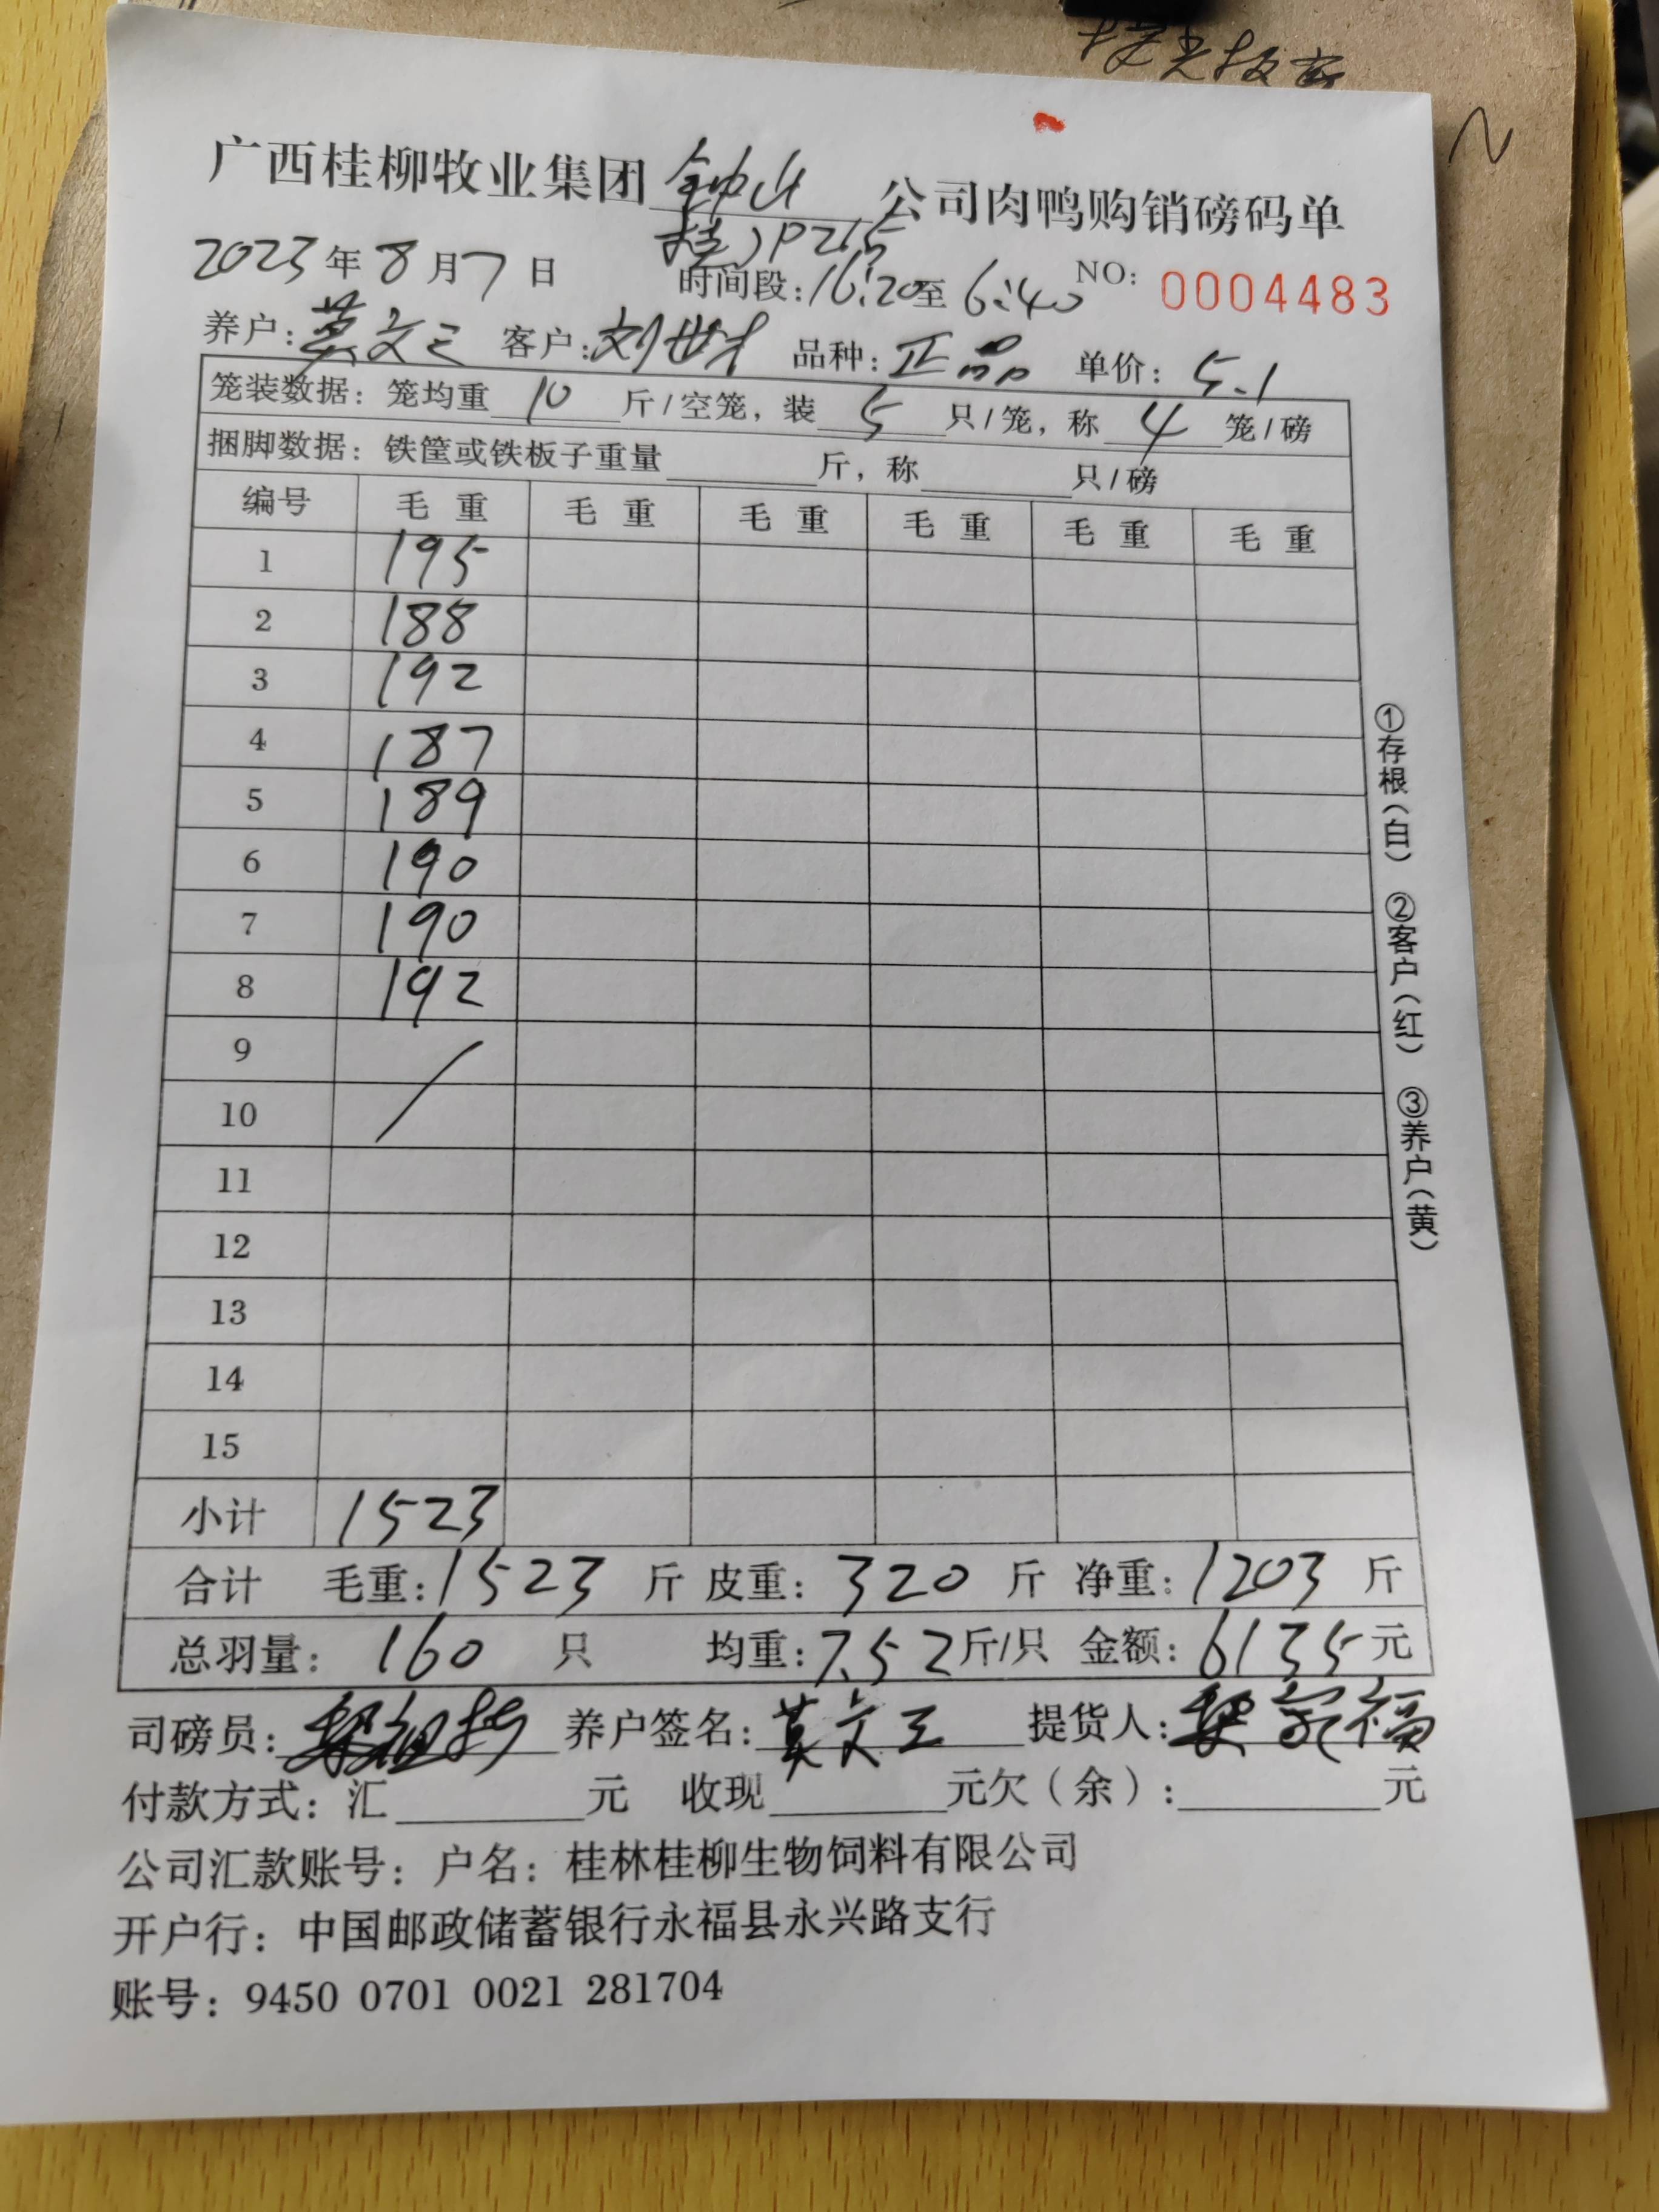 广西桂柳牧业集团 钟山 公司肉鸭购销磅码单
2023年8月7日 时间段:16:20至6:40 NO: 0004483
养户:莫文三 客户:刘世才 品种:正品 单价:5.1
笼装数据:笼均重 10 斤/空笼,装 5 只/笼,称 4 笼/磅
捆脚数据:铁筐或铁板子重量 斤,称 只/磅
编号 毛重 毛重 毛重 毛重 毛重 毛重
1 195
2 188
3 192
4 187
5 189
6 190
7 190
8 192
9
10
11
12
13
14
15
小计 1523
合计 毛重:1523 斤 皮重:320 斤 净重:1203 斤
总羽量:160 只 均重:7.52斤/只 金额:6135元
司磅员: 养户签名:莫文三 提货人:
付款方式:汇 元 收现 元欠(余): 元
公司汇款账号:户名:桂林桂柳生物饲料有限公司
开户行:中国邮政储蓄银行永福县永兴路支行
账号:9450 0701 0021 281704
①存根(白) ②客户(红) ③养户(黄)